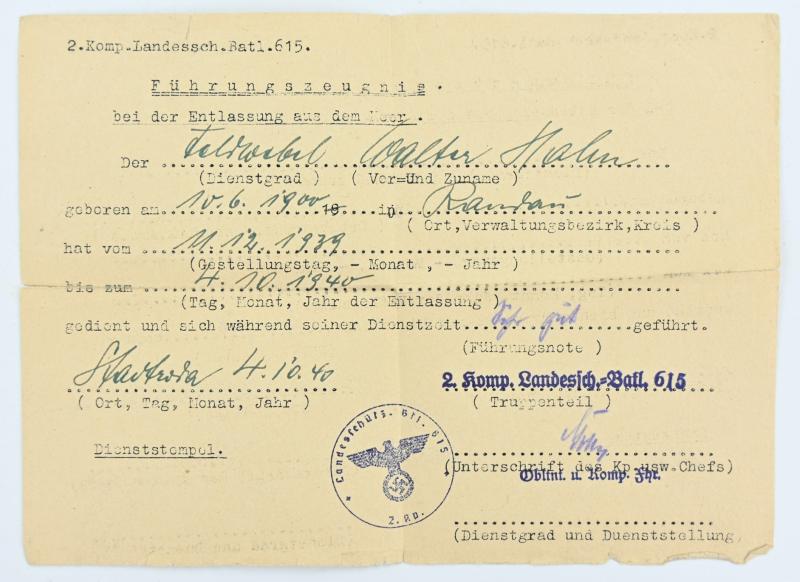 2.Komp.Landessch.Batl.615.
Führungszeugnis.
bei der Entlassung aus dem Heer.
Der Feldwebel Walter Hahn
(Dienstgrad ) ( Vor=Und Zuname )
geboren am 10.6.1900 18 in Randau
( Ort,Verwaltungsbezirk,Kreis )
hat vom 11.12.1939
(Gestellungstag, - Monat , - Jahr )
bis zum 4.10.1940
(Tag, Monat, Jahr der Entlassung )
gedient und sich während seiner Dienstzeit Sehr gut geführt.
(Führungsnote )
Stadtroda 4.10.40
( Ort, Tag, Monat, Jahr )
2. Komp. Landessch.-Batl. 615
( Truppenteil )
Dienststempel.
Landesschütz. Btl. 615
2. Kp.
(Unterschrift des Kp.usw.Chefs)
Obltnt. u. Komp. Fhr.
(Dienstgrad und Duenststellung